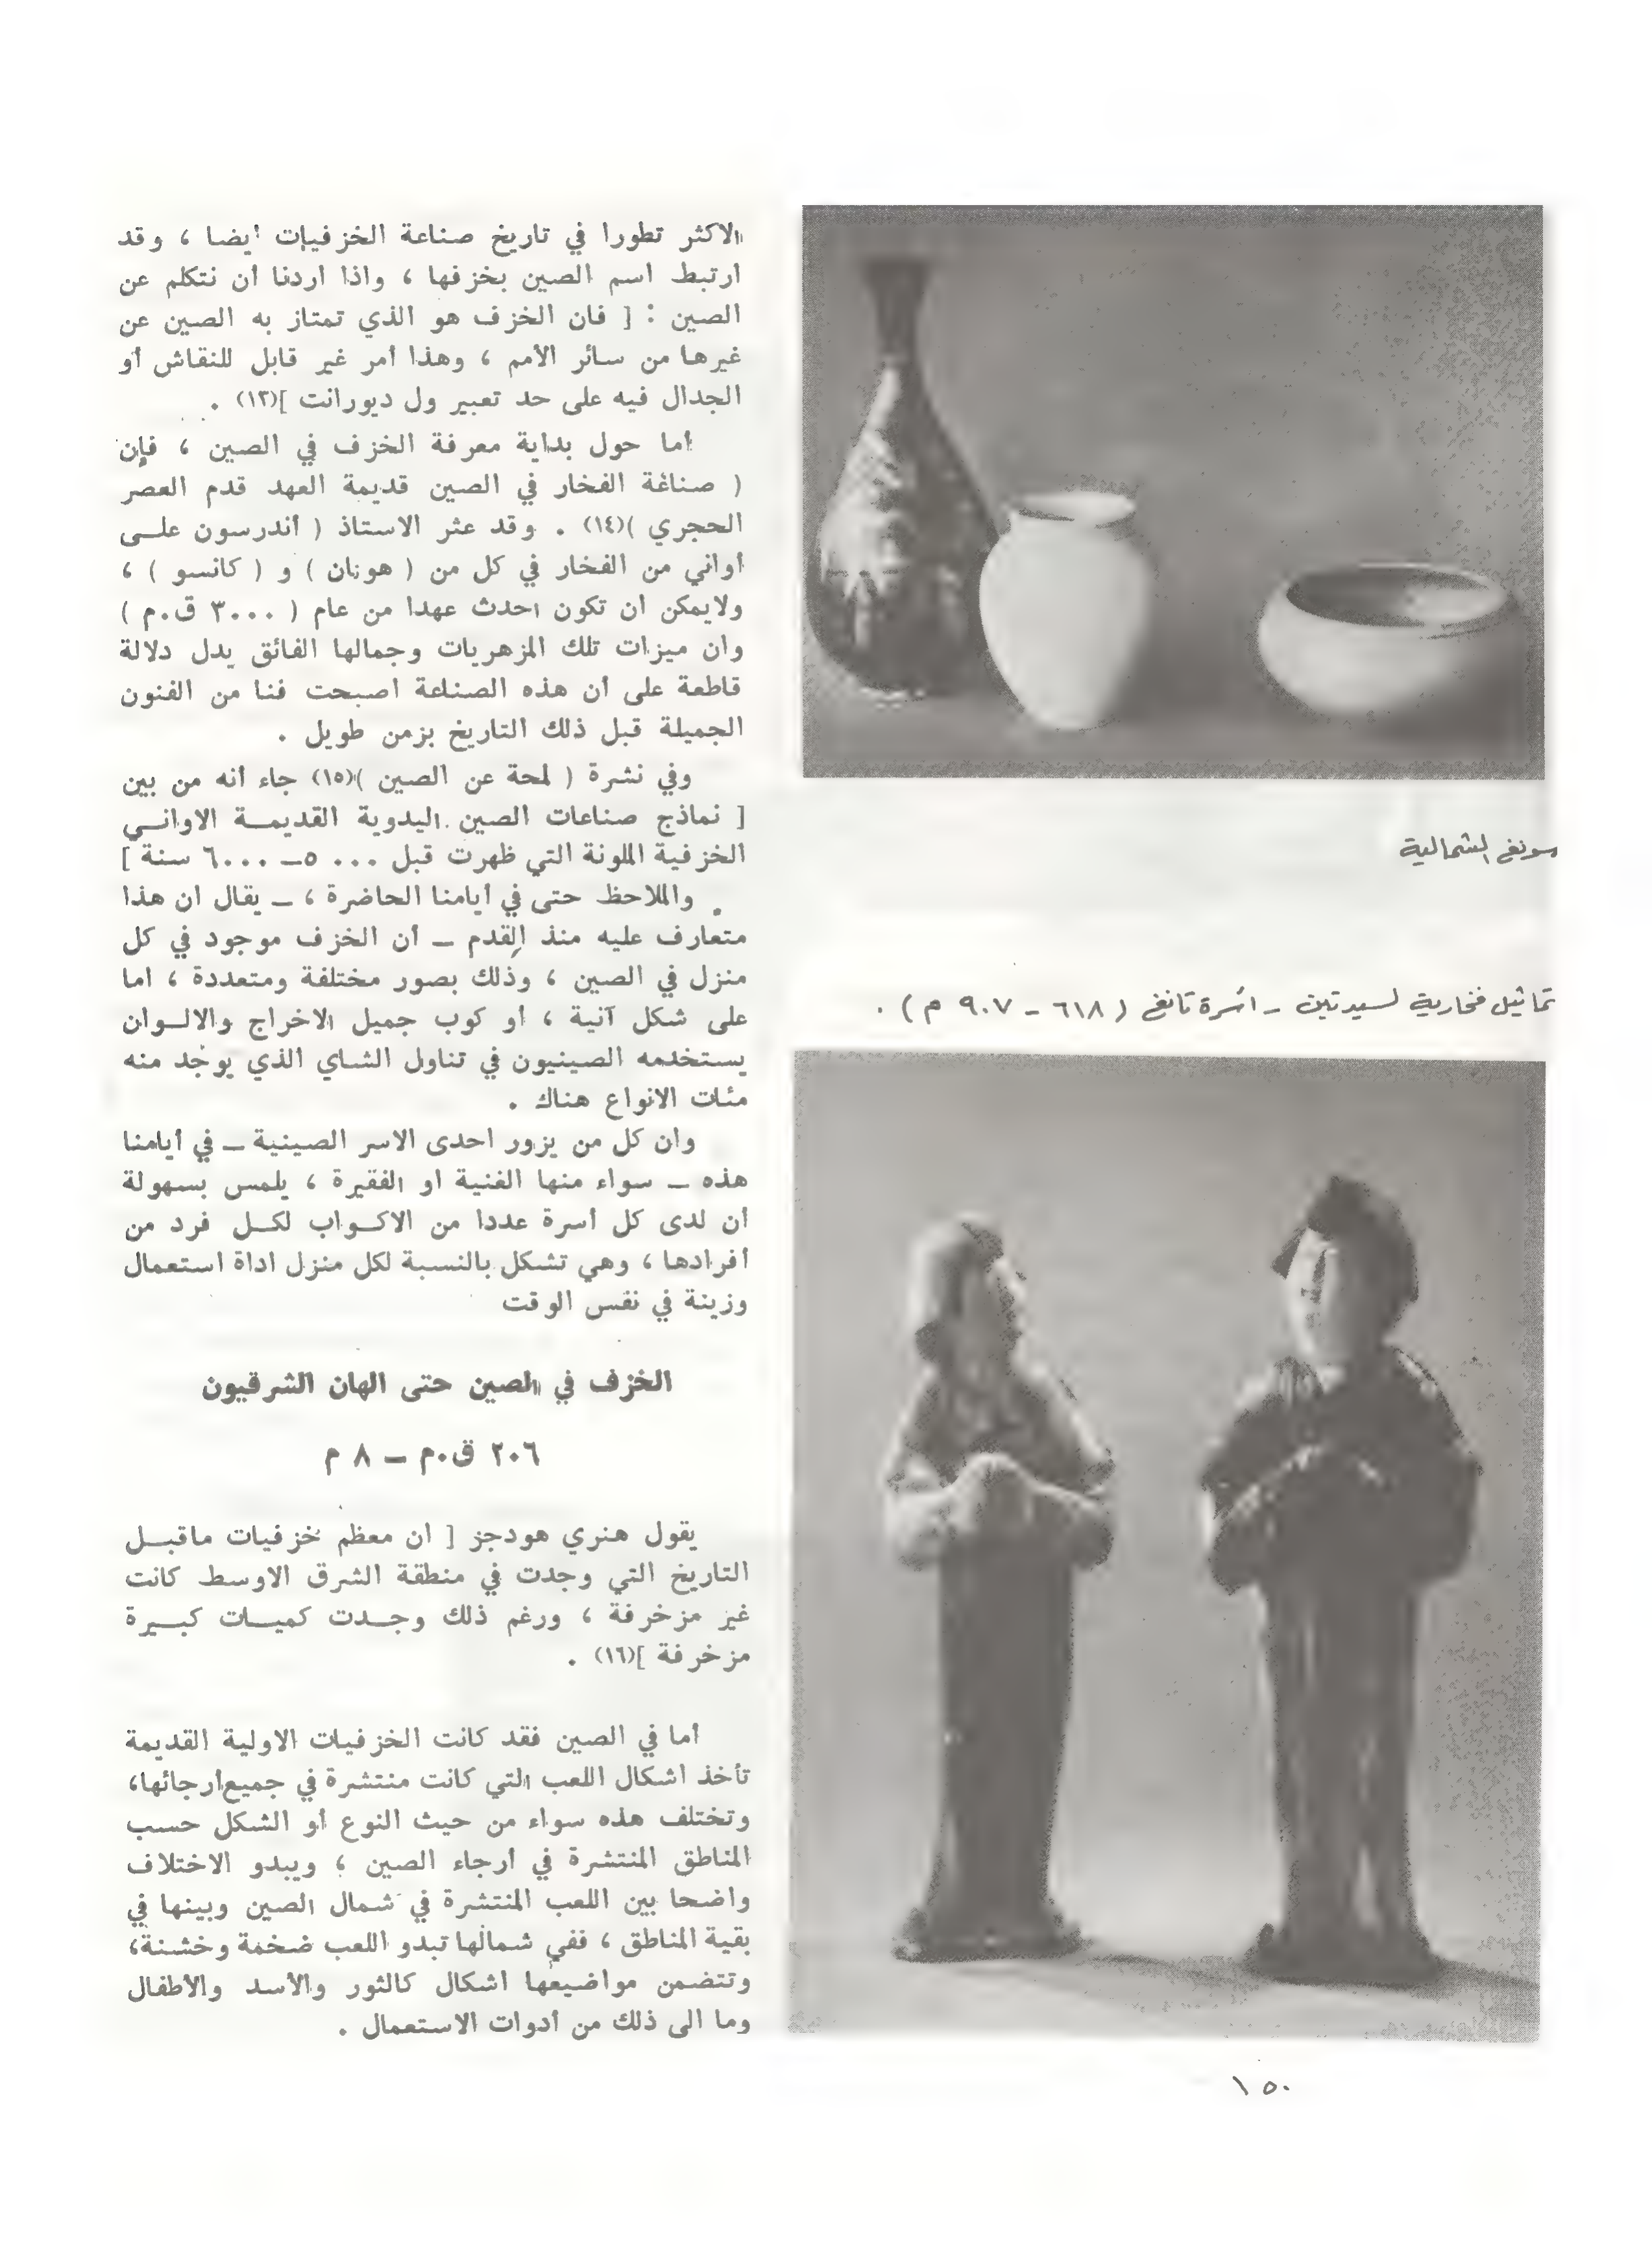 سونغ الشمالية
تماثيل فخارية لسيدتين - أسرة تانغ ( ٦١٨ - ٩٠٧ م ) .
الاكثر تطورا في تاريخ صناعة الخزفيات أيضا ، وقد
ارتبط اسم الصين بخزفها ، واذا اردنا أن نتكلم عن
الصين : [ فان الخزف هو الذي تمتاز به الصين عن
غيرها من سائر الأمم ، وهذا أمر غير قابل للنقاش أو
الجدال فيه على حد تعبير ول ديورانت ](١٣) .
أما حول بداية معرفة الخزف في الصين ، فإن
( صناعة الفخار في الصين قديمة العهد قدم العصر
الحجري )(١٤) . وقد عثر الاستاذ ( أندرسون علــى
أواني من الفخار في كل من ( هونان ) و ( كانسو ) ،
ولايمكن ان تكون احدث عهدا من عام ( ٣٠٠٠ ق.م )
وان ميزات تلك المزهريات وجمالها الفائق يدل دلالة
قاطعة على أن هذه الصناعة اصبحت فنا من الفنون
الجميلة قبل ذلك التاريخ بزمن طويل .
وفي نشرة ( لمحة عن الصين )(١٥) جاء أنه من بين
[ نماذج صناعات الصين اليدوية القديمــة الاوانــي
الخزفية الملونة التي ظهرت قبل ٥٠٠٠ــ ٦٠٠٠ سنة ]
والملاحظ حتى في أيامنا الحاضرة ، ــ يقال ان هذا
متعارف عليه منذ القدم ــ أن الخزف موجود في كل
منزل في الصين ، وذلك بصور مختلفة ومتعددة ، اما
على شكل آنية ، أو كوب جميل الاخراج والالــوان
يستخدمه الصينيون في تناول الشاي الذي يوجد منه
مئات الانواع هناك .
وان كل من يزور احدى الاسر الصينية ــ في أيامنا
هذه ــ سواء منها الغنية او الفقيرة ، يلمس بسهولة
أن لدى كل أسرة عددا من الاكــواب لكــل فرد من
أفرادها ، وهي تشكل بالنسبة لكل منزل اداة استعمال
وزينة في نفس الوقت
الخزف في الصين حتى الهان الشرقيون
٢٠٦ ق.م ــ ٨ م
يقول هنري هودجز [ ان معظم خزفيات ماقبــل
التاريخ التي وجدت في منطقة الشرق الاوسط كانت
غير مزخرفة ، ورغم ذلك وجــدت كميــات كبــيرة
مزخرفة ](١٦) .
أما في الصين فقد كانت الخزفيات الاولية القديمة
تأخذ اشكال اللعب التي كانت منتشرة في جميع أرجائها،
وتختلف هذه سواء من حيث النوع أو الشكل حسب
المناطق المنتشرة في أرجاء الصين ، ويبدو الاختلاف
واضحا بين اللعب المنتشرة في شمال الصين وبينها في
بقية المناطق ، ففي شمالها تبدو اللعب ضخمة وخشنة،
وتتضمن مواضيعها اشكال كالثور والأسد والأطفال
وما الى ذلك من أدوات الاستعمال .
١٥٠